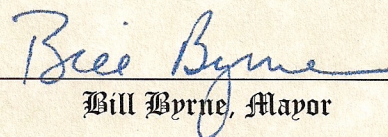 Bill Byrne
Bill Byrne, Mayor